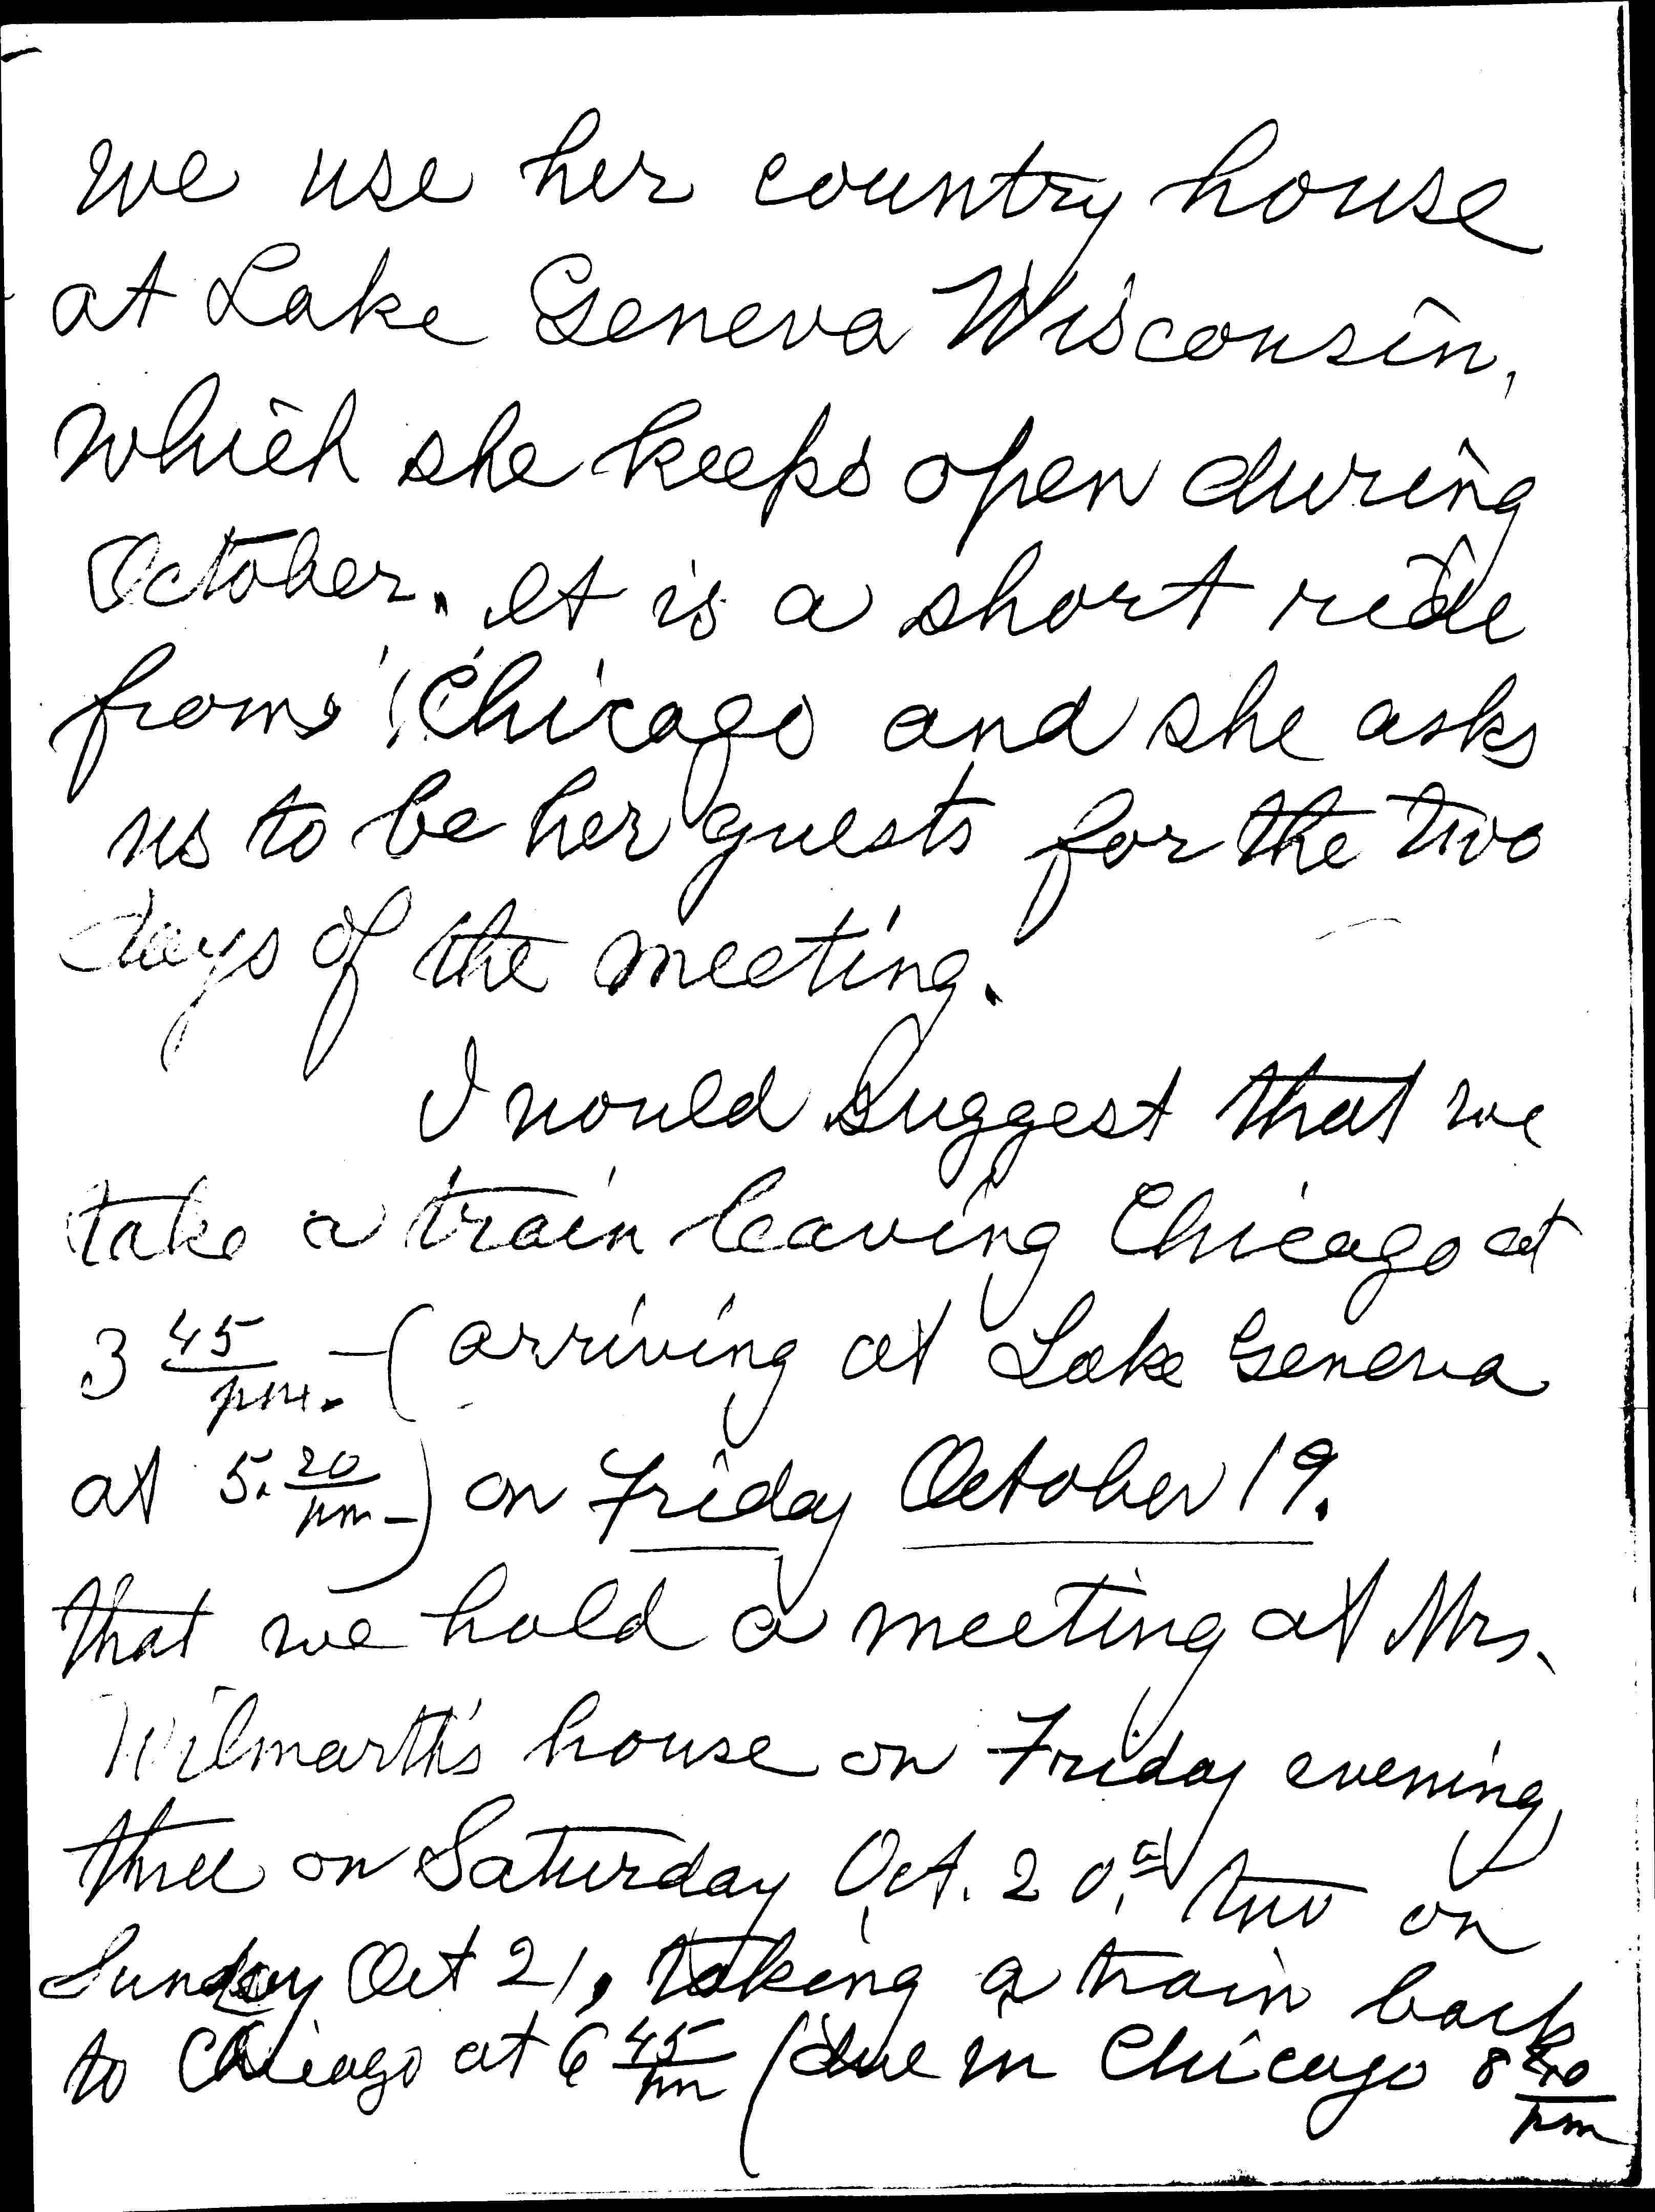 we use her country house
at Lake Geneva Wisconsin,
which she keeps open during
October. It is a short ride
from Chicago and she asks
us to be her guests for the two
days of the meeting.
I would suggest that we
take a train leaving Chicago at
3 45 pm. - (arriving at Lake Geneva
at 5. 20 pm -) on Friday October 19.
that we hold a meeting at Mrs.
Wilmarth's house on Friday evening,
three on Saturday Oct. 20, two on
Sunday Oct 21, taking a train back
to Chicago at 6 45 pm (due in Chicago 8 pm